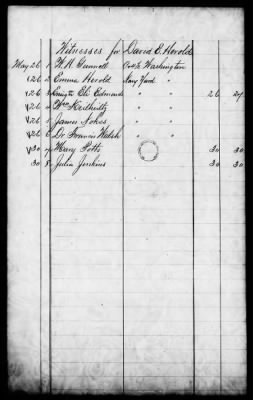 Witnesses for David E. Herold
May 26 1 W. H. Gunnell Washington
" 26 2 Emma Herold Navy Yard "
" 26 3 Eli Edmonds " " 26 27
" 26 4 Wm Keilholtz " "
" 26 5 James Nokes " "
" 26 6 Dr Francis Walsh " "
" 30 7 Henry Potts 30 30
30 8 Julia Jenkins 30 30